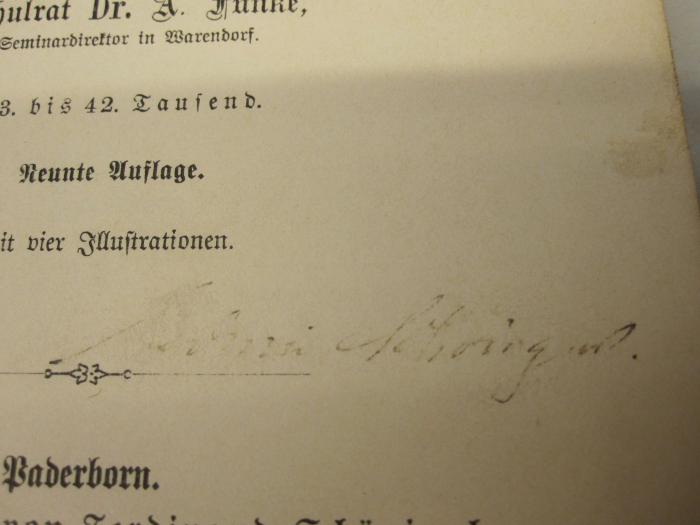 hulrat Dr. A. Funke,
Seminardirektor in Warendorf.
3. bis 42. Tausend.
Neunte Auflage.
it vier Illustrationen.
Paderborn.
Ferdinand